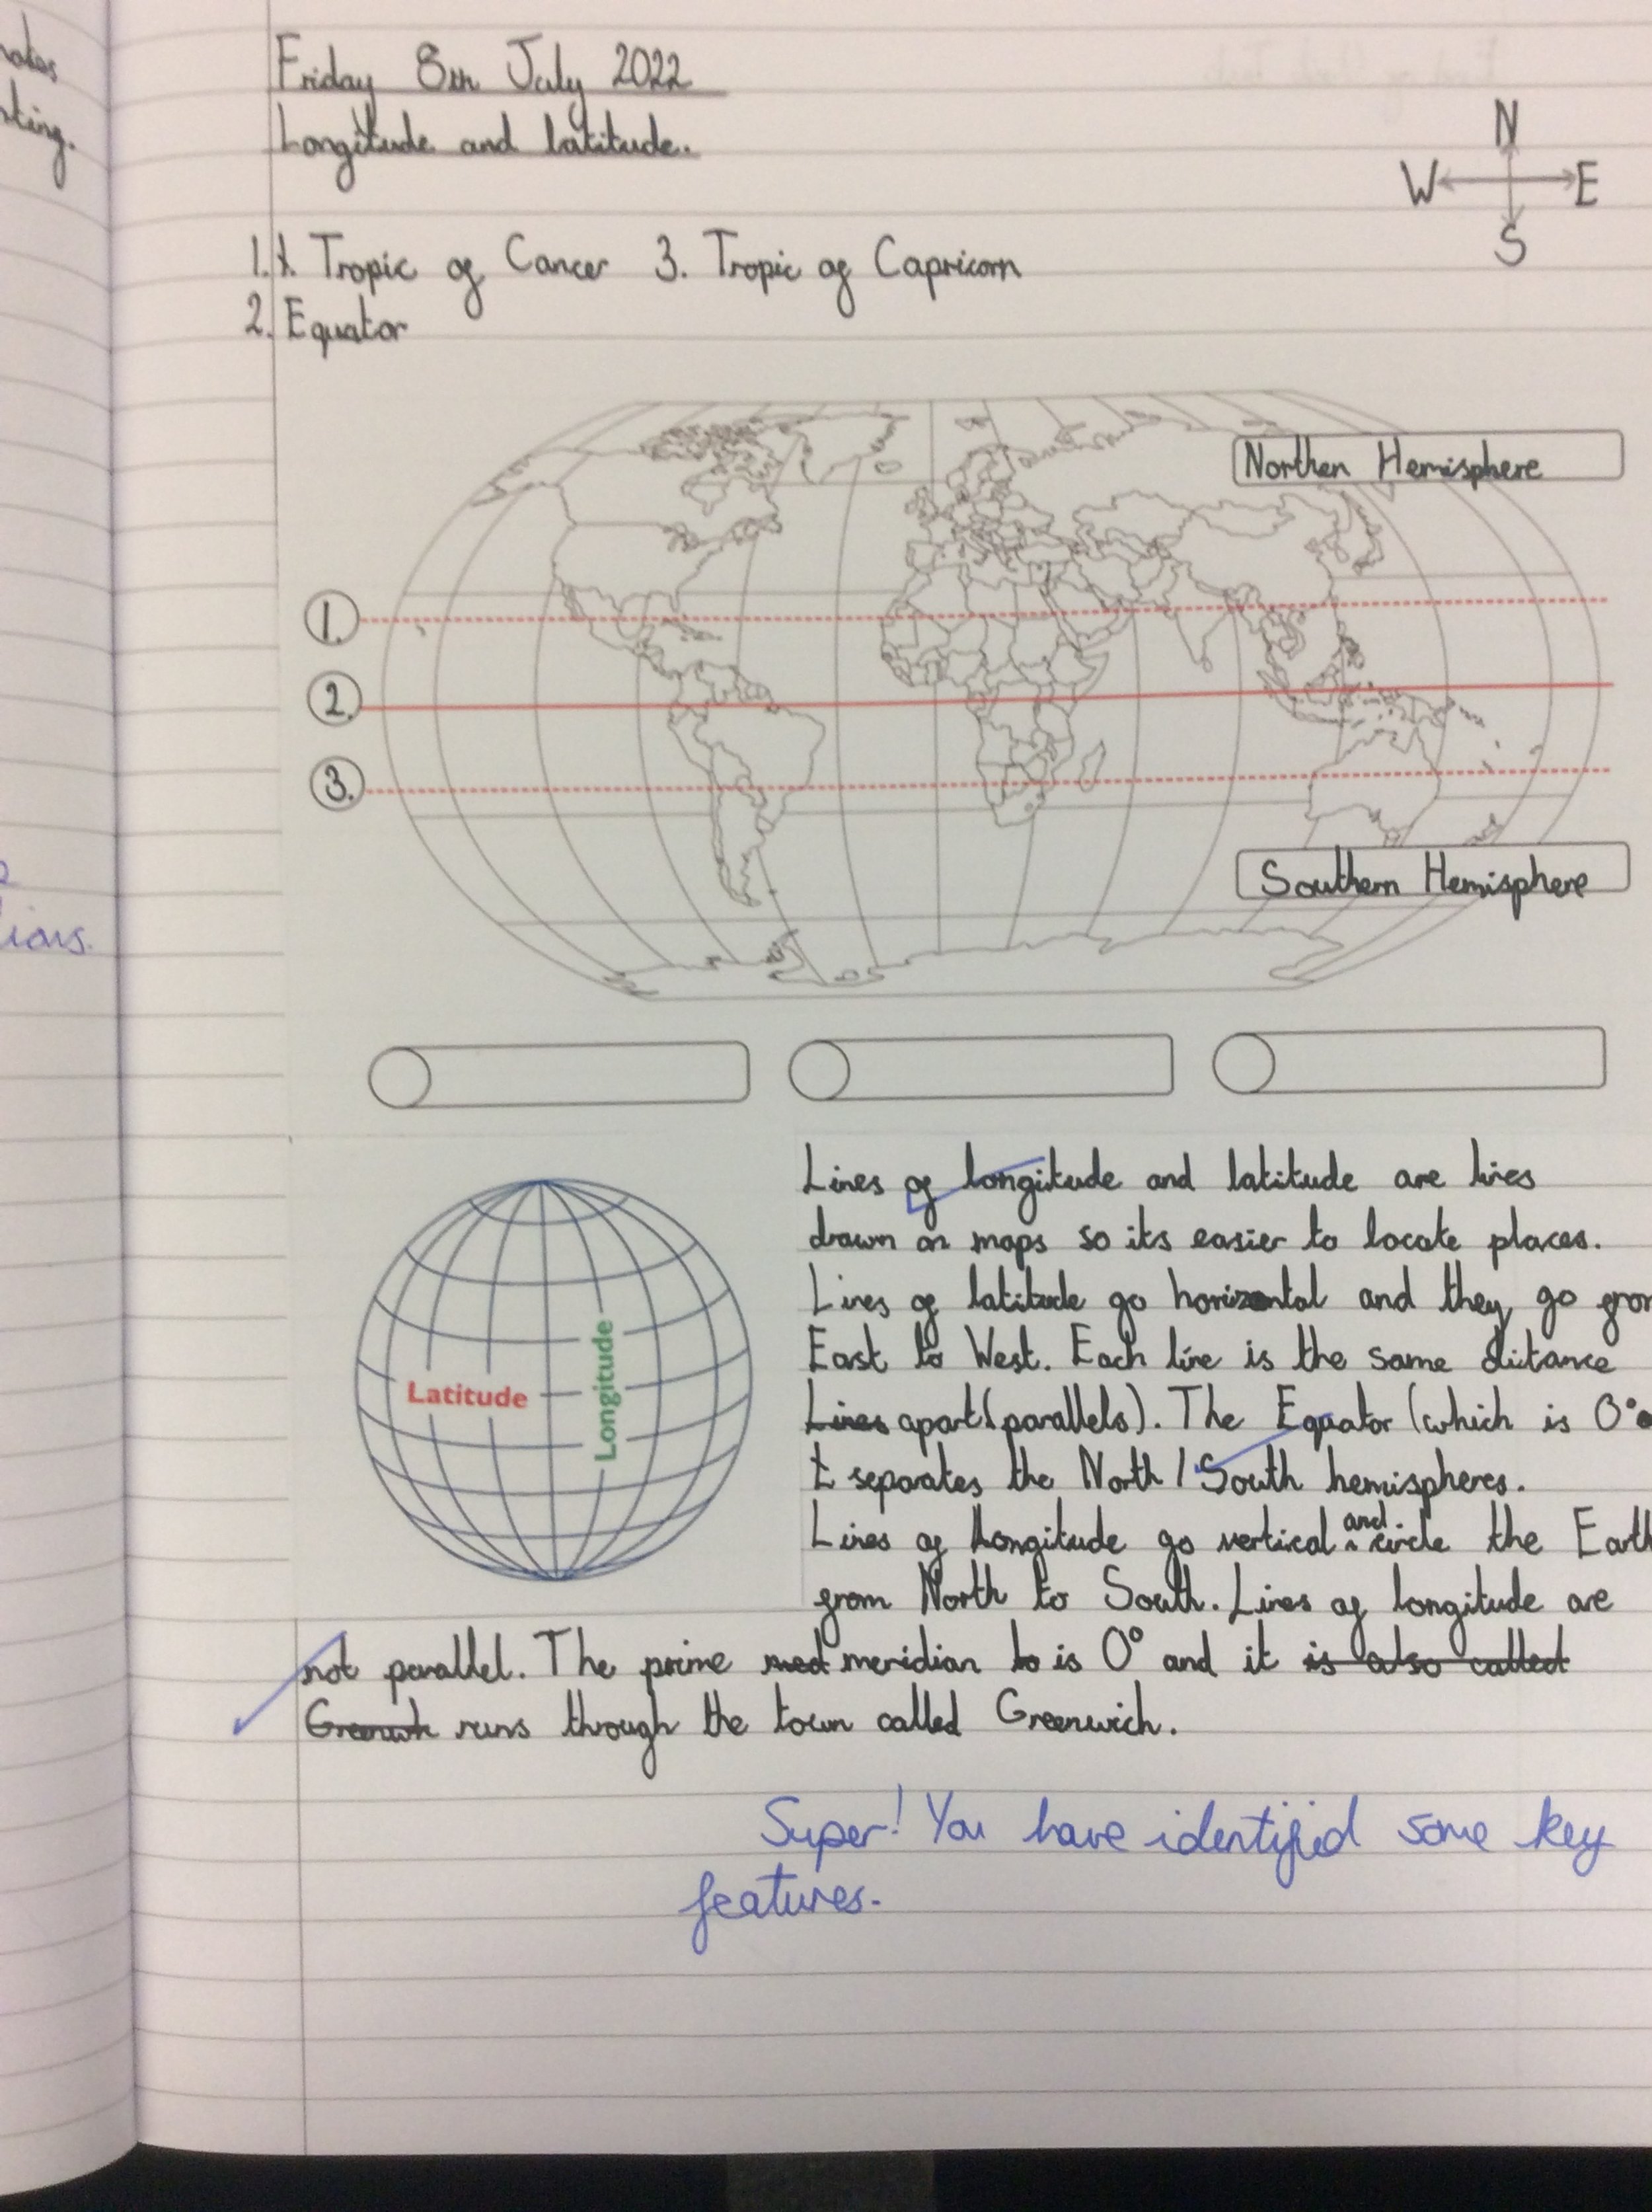 notes
ting.
lions.
Friday 8th July 2022
Longitude and latitude.
N
W E
S
1. 1. Tropic of Cancer 3. Tropic of Capricorn
2. Equator
Northen Hemisphere
1.
2.
3.
Southern Hemisphere
Latitude
Longitude
Lines of longitude and latitude are lines
drawn on maps so its easier to locate places.
Lines of latitude go horizontal and they go from
East to West. Each line is the same distance
Lines apart (parallels). The Equator (which is 0°
separates the North / South hemispheres.
Lines of Longitude go vertical and circle the Earth
from North to South. Lines of longitude are
not parallel. The prime med meridian is 0° and it is also called
Greenwh runs through the town called Greenwich.
Super! You have identified some key
features.